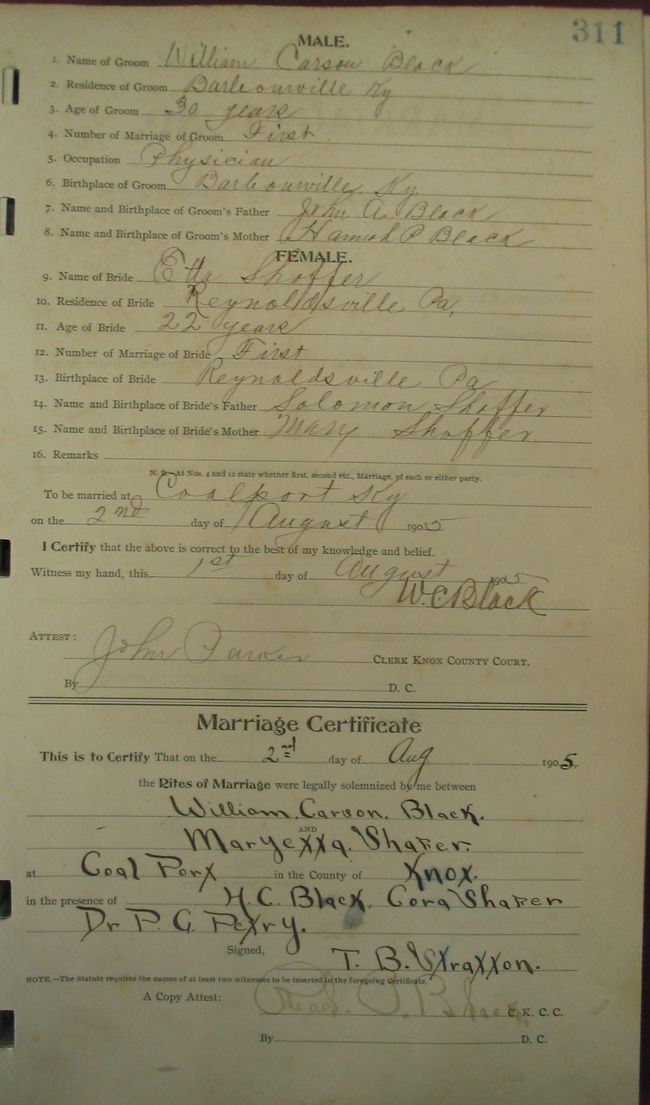 311
MALE.
1. Name of Groom William Carson Black
2. Residence of Groom Barbourville Ky
3. Age of Groom 30 years
4. Number of Marriage of Groom First
5. Occupation Physician
6. Birthplace of Groom Barbourville Ky
7. Name and Birthplace of Groom's Father John A. Black
8. Name and Birthplace of Groom's Mother Hannah P Black
FEMALE.
9. Name of Bride Etta Shoffer
10. Residence of Bride Reynoldsville Pa,
11. Age of Bride 22 years
12. Number of Marriage of Bride First
13. Birthplace of Bride Reynoldsville Pa
14. Name and Birthplace of Bride's Father Solomon Shoffer
15. Name and Birthplace of Bride's Mother Mary Shoffer
16. Remarks
N. B.—At Nos. 4 and 12 state whether first, second etc., Marriage, of each or either party.
To be married at Coalport Ky
on the 2nd day of August 1905
I Certify that the above is correct to the best of my knowledge and belief.
Witness my hand, this 1st day of August 1905
W. C Black
ATTEST:
John Parker CLERK KNOX COUNTY COURT.
By D. C.
Marriage Certificate
This is to Certify That on the 2nd day of Aug 1905
the Rites of Marriage were legally solemnized by me between
William. Carson. Black.
AND
Maryetta. Shafer.
at Coal Port in the County of Knox.
in the presence of H. C. Black, Cora Shafer
Dr P. G. Petry.
Signed, T. B. Stratton.
NOTE.—The Statute requires the names of at least two witnesses to be inserted in the foregoing Certificate.
A Copy Attest: Black C. K. C. C.
By D. C.